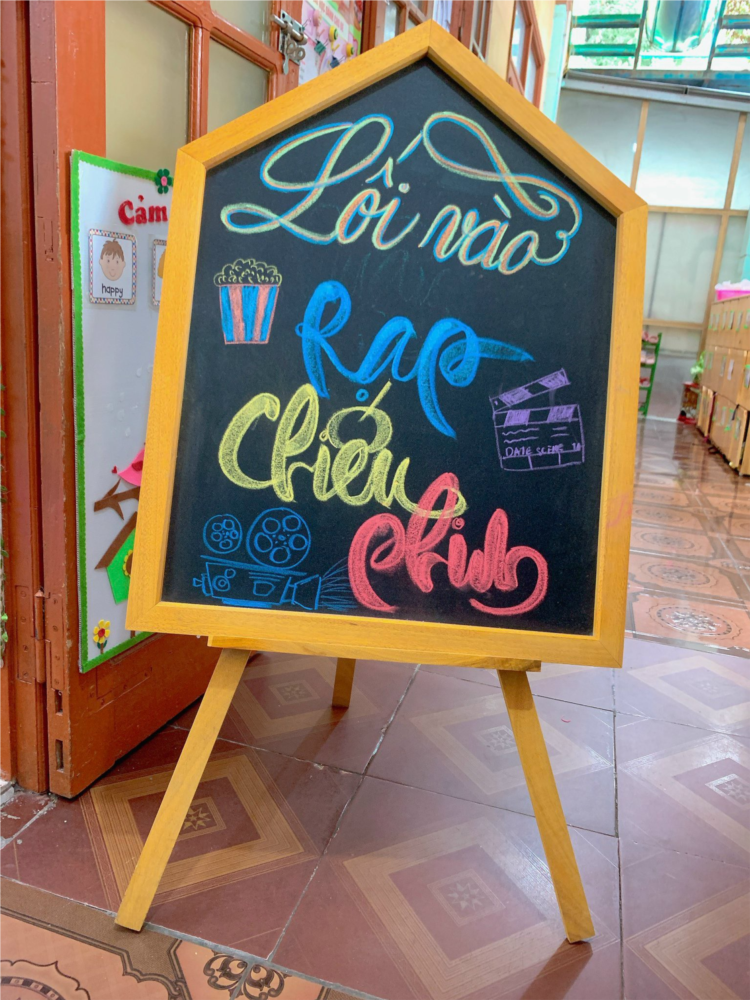 Cảm
happy
Lối vào
Rạp
Chiếu
phim
DATE SCENE